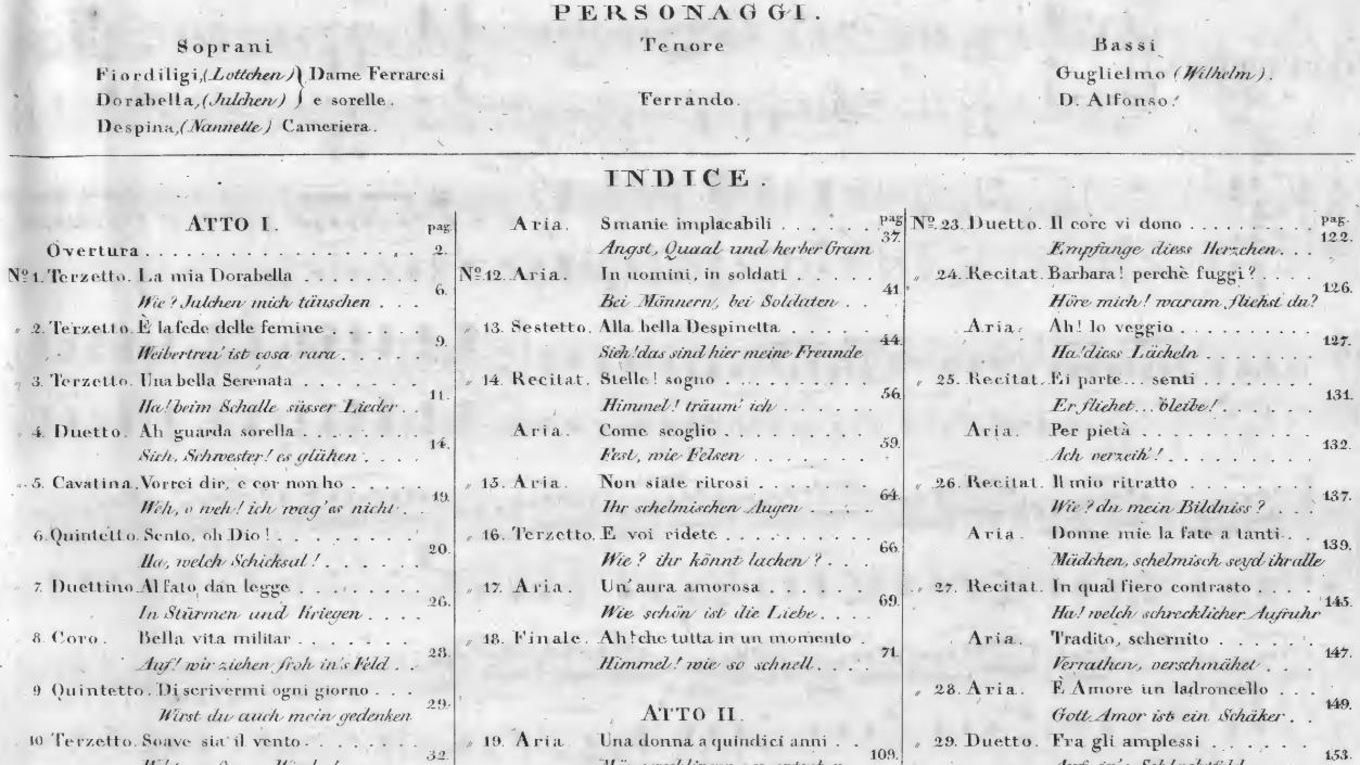 PERSONAGGI.
Soprani
Fiordiligi, (Lottchen) } Dame Ferraresi
Dorabella, (Julchen) } e sorelle.
Despina, (Nannette) Cameriera.
Tenore
Ferrando.
Bassi
Guglielmo (Wilhelm).
D. Alfonso.
INDICE.
ATTO I. pag.
Overtura . . . . . . . . . . . . . . . . . 2.
Nº 1. Terzetto. La mia Dorabella . . . . . . .
Wie? Julchen mich täuschen . . . 6.
" 2. Terzetto. È la fede delle femine . . . . .
Weibertreu' ist cosa rara . . . . . 9.
" 3. Terzetto. Una bella Serenata . . . . . . .
Ha! beim Schalle süsser Lieder . . 11.
" 4. Duetto. Ah guarda sorella . . . . . . .
Sieh, Schwester! es glühen . . . . 14.
" 5. Cavatina. Vorrei dir, e cor non ho . . . .
Weh, o weh! ich wag' es nicht . . 19.
6. Quintetto. Sento, oh Dio! . . . . . . . .
Ha, welch Schicksal! . . . . . . 20.
" 7. Duettino. Al fato dan legge . . . . . . .
In Stürmen und Kriegen . . . . 26.
8. Coro. Bella vita militar . . . . . . .
Auf! wir ziehen froh in's Feld . . 28.
9 Quintetto. Di scrivermi ogni giorno . . .
Wirst du auch mein gedenken 29.
10 Terzetto. Soave sia il vento . . . . . . . 32.
Aria. Smanie implacabili . . . . . . pag
Angst, Quaal und herber Gram 37.
Nº 12. Aria. In uomini, in soldati . . . . .
Bei Männern, bei Soldaten . . 41
" 13. Sestetto. Alla bella Despinetta . . . . .
Sieh! das sind hier meine Freunde 44.
" 14. Recitat. Stelle! sogno . . . . . . . . .
Himmel! träum' ich . . . . . 56.
Aria. Come scoglio . . . . . . . . .
Fest, wie Felsen . . . . . . . 59.
" 15. Aria. Non siate ritrosi . . . . . . .
Ihr schelmischen Augen . . . . 64.
" 16. Terzetto. E voi ridete . . . . . . . . .
Wie? ihr könnt lachen? . . . . 66.
" 17. Aria. Un' aura amorosa . . . . . . .
Wie schön ist die Liebe . . . . 69.
" 18. Finale. Ah! che tutta in un momento .
Himmel! wie so schnell . . . . 71.
ATTO II.
" 19. Aria. Una donna a quindici anni . . 109.
Nº. 23. Duetto. Il core vi dono . . . . . . . . pag.
Empfange diess Herzchen . . . 122.
" 24. Recitat. Barbara! perchè fuggi? . . . .
Höre mich! warum fliehst du? 126.
Aria. Ah! lo veggio . . . . . . . . .
Ha! diess Lächeln . . . . . . . 127.
" 25. Recitat. Ei parte... senti . . . . . . .
Er fliehet... bleibe! . . . . . . 131.
Aria. Per pietà . . . . . . . . . . .
Ach verzeih'! . . . . . . . . . 132.
" 26. Recitat. Il mio ritratto . . . . . . . .
Wie? du mein Bildniss? . . . . 137.
Aria. Donne mie la fate a tanti . .
Mädchen, schelmisch seyd ihr alle 139.
" 27. Recitat. In qual fiero contrasto . . . .
Ha! welch schrecklicher Aufruhr 145.
Aria. Tradito, schernito . . . . . .
Verrathen, verschmähet . . . . 147.
" 28. Aria. È Amore un ladroncello . . .
Gott Amor ist ein Schäker . . 149.
" 29. Duetto. Fra gli amplessi . . . . . . . 153.